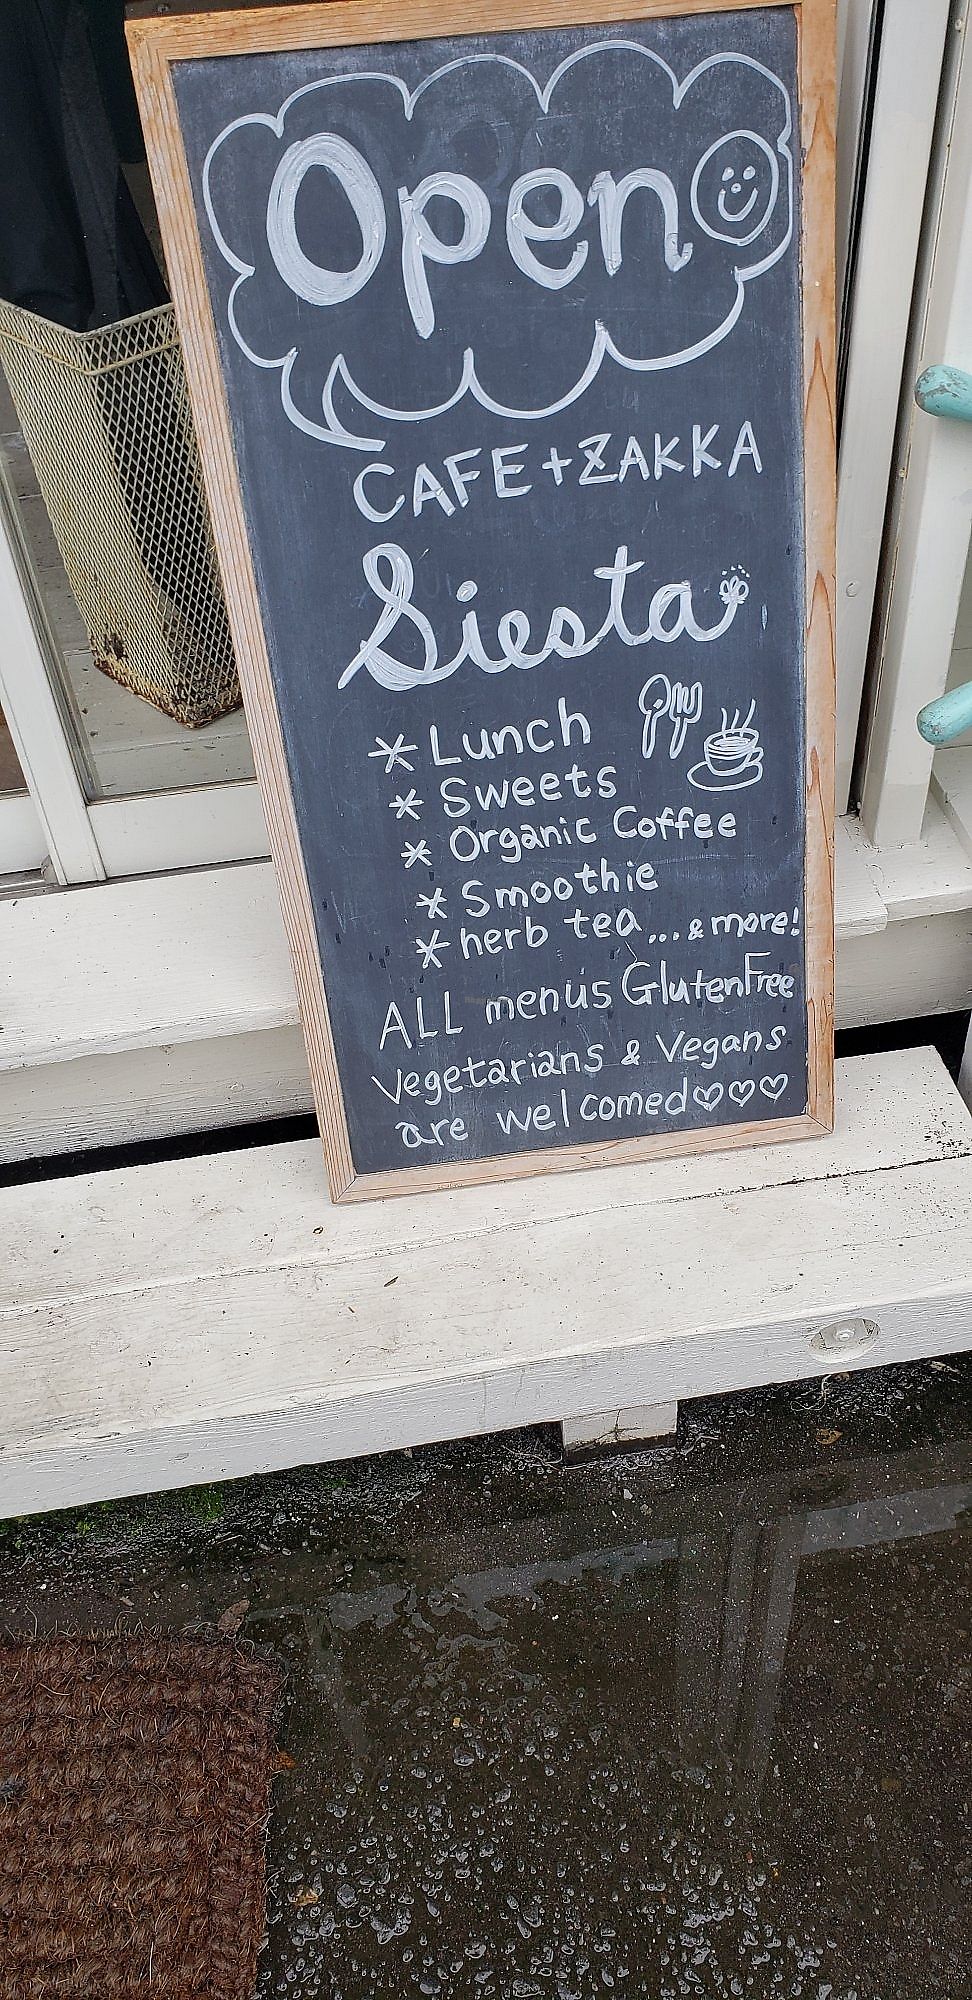 Open
CAFE+ZAKKA
Siesta
* Lunch
* Sweets
* Organic Coffee
* Smoothie
* herb tea...& more!
ALL menus GlutenFree
Vegetarians & Vegans
are welcomed♡♡♡